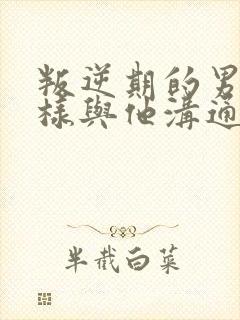 叛逆期的男
樣與他溝通
半截白菜